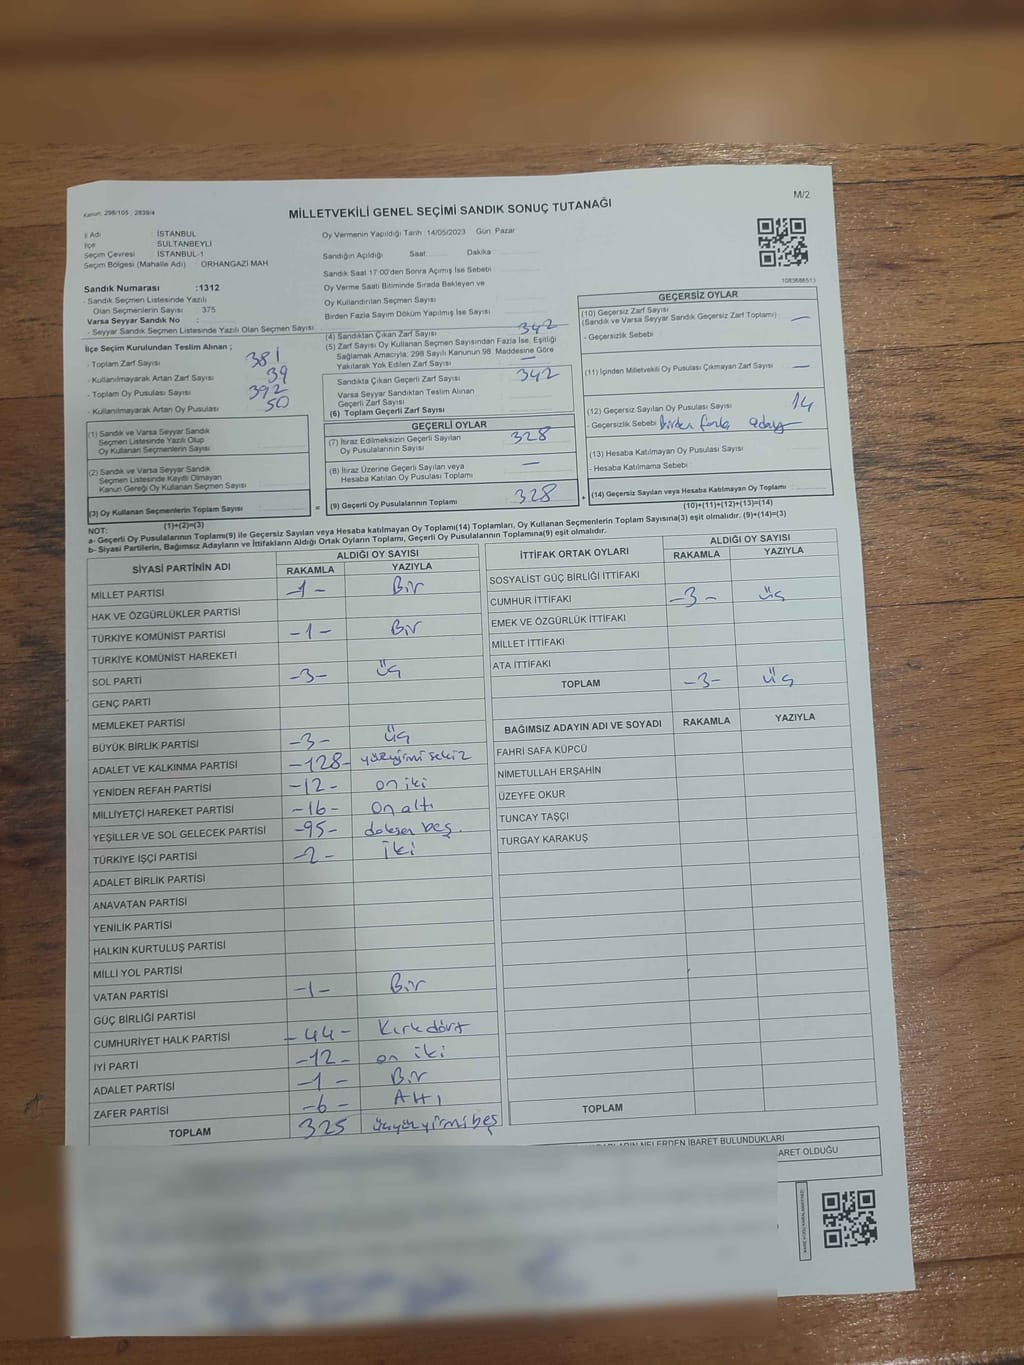 M/2
Kanun: 298/105 ; 2839/4
MİLLETVEKİLİ GENEL SEÇİMİ SANDIK SONUÇ TUTANAĞI
İl Adı : İSTANBUL
İlçe : SULTANBEYLİ
Seçim Çevresi : İSTANBUL-1
Seçim Bölgesi (Mahalle Adı) : ORHANGAZİ MAH
Sandık Numarası :1312
- Sandık Seçmen Listesinde Yazılı
Olan Seçmenlerin Sayısı : 375
Varsa Seyyar Sandık No :
- Seyyar Sandık Seçmen Listesinde Yazılı Olan Seçmen Sayısı
İlçe Seçim Kurulundan Teslim Alınan ;
- Toplam Zarf Sayısı 381
- Kullanılmayarak Artan Zarf Sayısı 39
- Toplam Oy Pusulası Sayısı 392
- Kullanılmayarak Artan Oy Pusulası 50
(1) Sandık ve Varsa Seyyar Sandık
Seçmen Listesinde Yazılı Olup
Oy Kullanan Seçmenlerin Sayısı
(2) Sandık ve Varsa Seyyar Sandık
Seçmen Listesinde Kayıtlı Olmayan
Kanun Gereği Oy Kullanan Seçmen Sayısı
(3) Oy Kullanan Seçmenlerin Toplam Sayısı
(1)+(2)=(3)
Oy Vermenin Yapıldığı Tarih :14/05/2023 Gün: Pazar
Sandığın Açıldığı Saat: Dakika:
Sandık Saat 17:00'den Sonra Açımış İse Sebebi
Oy Verme Saati Bitiminde Sırada Bekleyen ve
Oy Kullandırılan Seçmen Sayısı
Birden Fazla Sayım Döküm Yapılmış İse Sayısı
(4) Sandıktan Çıkan Zarf Sayısı 342
(5) Zarf Sayısı Oy Kullanan Seçmen Sayısından Fazla İse, Eşitliği
Sağlamak Amacıyla, 298 Sayılı Kanunun 98. Maddesine Göre
Yakılarak Yok Edilen Zarf Sayısı —
Sandıkta Çıkan Geçerli Zarf Sayısı 342
Varsa Seyyar Sandıktan Teslim Alınan
Geçerli Zarf Sayısı
(6) Toplam Geçerli Zarf Sayısı
GEÇERLİ OYLAR
(7) İtiraz Edilmeksizin Geçerli Sayılan
Oy Pusulasının Sayısı 328
(8) İtiraz Üzerine Geçerli Sayılan veya
Hesaba Katılan Oy Pusulası Toplamı —
= (9) Geçerli Oy Pusulalarının Toplamı 328
1083686513
GEÇERSİZ OYLAR
(10) Geçersiz Zarf Sayısı
(Sandık ve Varsa Seyyar Sandık Geçersiz Zarf Toplamı) : —
- Geçersizlik Sebebi :
(11) İçinden Milletvekili Oy Pusulası Çıkmayan Zarf Sayısı —
(12) Geçersiz Sayılan Oy Pusulası Sayısı 14
- Geçersizlik Sebebi Birden fazla aday
(13) Hesaba Katılmayan Oy Pusulası Sayısı
- Hesaba Katılmama Sebebi
+ (14) Geçersiz Sayılan veya Hesaba Katılmayan Oy Toplamı
(10)+(11)+(12)+(13)=(14)
NOT:
a- Geçerli Oy Pusulalarının Toplamı(9) ile Geçersiz Sayılan veya Hesaba katılmayan Oy Toplamı(14) Toplamları, Oy Kullanan Seçmenlerin Toplam Sayısına(3) eşit olmalıdır. (9)+(14)=(3)
b- Siyasi Partilerin, Bağımsız Adayların ve İttifakların Aldığı Ortak Oyların Toplamı, Geçerli Oy Pusulalarının Toplamına(9) eşit olmalıdır.
SİYASİ PARTİNİN ADI ALDIĞI OY SAYISI
RAKAMLA YAZIYLA
MİLLET PARTİSİ -1- Bir
HAK VE ÖZGÜRLÜKLER PARTİSİ
TÜRKİYE KOMÜNİST PARTİSİ -1- Bir
TÜRKİYE KOMÜNİST HAREKETİ
SOL PARTİ -3- üç
GENÇ PARTİ
MEMLEKET PARTİSİ
BÜYÜK BİRLİK PARTİSİ -3- üç
ADALET VE KALKINMA PARTİSİ -128- yüzyirmi sekiz
YENİDEN REFAH PARTİSİ -12- on iki
MİLLİYETÇİ HAREKET PARTİSİ -16- On altı
YEŞİLLER VE SOL GELECEK PARTİSİ -95- doksan beş.
TÜRKİYE İŞÇİ PARTİSİ -2- iki
ADALET BİRLİK PARTİSİ
ANAVATAN PARTİSİ
YENİLİK PARTİSİ
HALKIN KURTULUŞ PARTİSİ
MİLLİ YOL PARTİSİ
VATAN PARTİSİ -1- Bir
GÜÇ BİRLİĞİ PARTİSİ
CUMHURİYET HALK PARTİSİ -44- Kırk dört
İYİ PARTİ -12- on iki
ADALET PARTİSİ -1- Bir
ZAFER PARTİSİ -6- Altı
TOPLAM 325 üçyüzyirmibeş
İTTİFAK ORTAK OYLARI ALDIĞI OY SAYISI
RAKAMLA YAZIYLA
SOSYALİST GÜÇ BİRLİĞİ İTTİFAKI
CUMHUR İTTİFAKI -3- üç
EMEK VE ÖZGÜRLÜK İTTİFAKI
MİLLET İTTİFAKI
ATA İTTİFAKI
TOPLAM -3- üç
BAĞIMSIZ ADAYIN ADI VE SOYADI RAKAMLA YAZIYLA
FAHRİ SAFA KÜPCÜ
NİMETULLAH ERŞAHİN
ÜZEYFE OKUR
TUNCAY TAŞÇI
TURGAY KARAKUŞ
TOPLAM
NELERDEN İBARET BULUNDUKLARI
ARET OLDUĞU